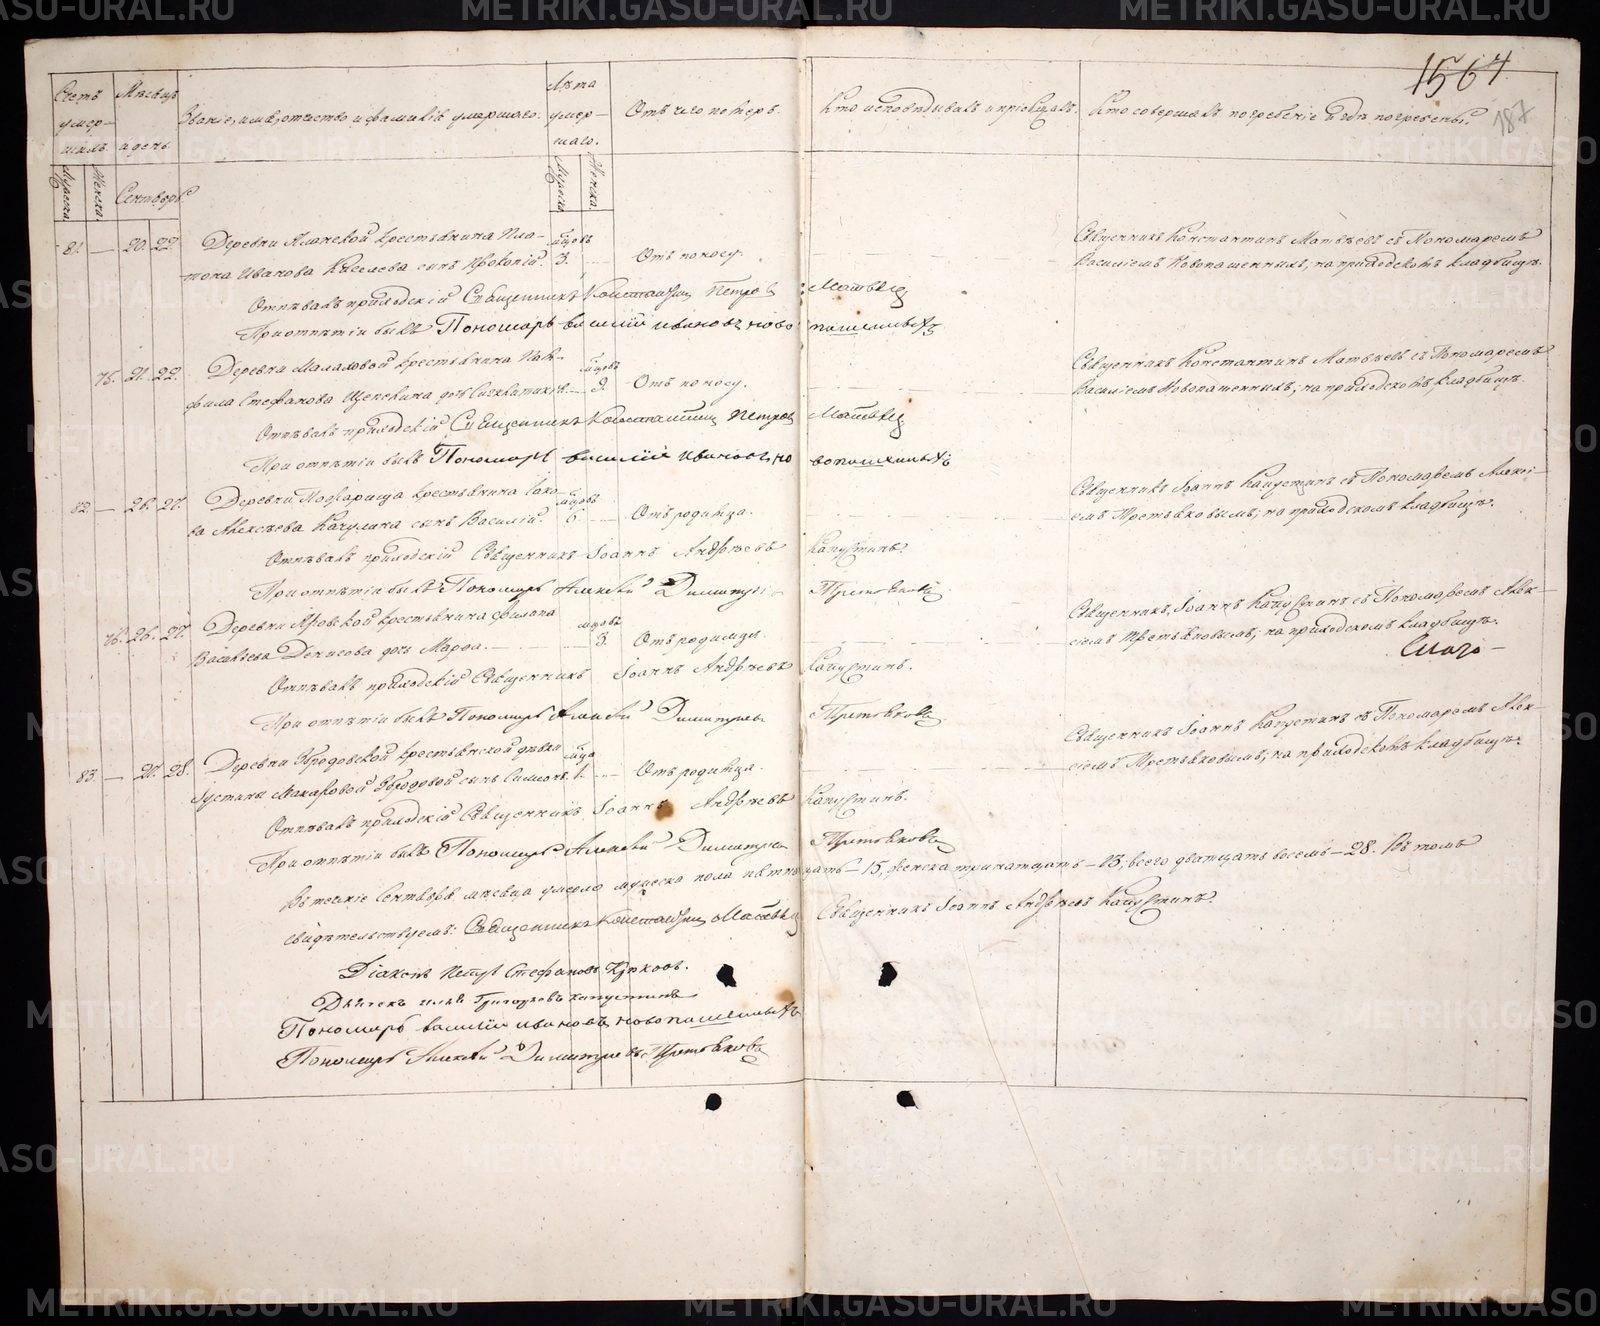 1564
187
Счетъ умер-шихъ.
Мѣсяцъ и день
Званіе, имя, отчество и фамилія умершаго.
Лѣта умер-шаго.
Отъ чего померъ.
Кто исповѣдывалъ и пріобщалъ.
Кто совершалъ погребеніе и гдѣ погребены.
Мужеска. Женска.
Сентябрь
Мужеска. Женска.
81. — 20. 22. Деревни крестьянина Пла-
тона Иванова Киселева сынъ Прокопій. 3. Отъ поносу.
Священникъ Константинъ Матвѣевъ съ Пономаремъ
Василіемъ Новопашенныхъ, на приходскомъ кладбищѣ.
Отпѣвалъ приходскій Священникъ Константинъ Петровъ Матвѣевъ
При отпѣтіи былъ Пономарь Василій Ивановъ Новопашенныхъ
75. 21. 22. Деревни Малаховой крестьянина
Стефанова Щепкина дочь 9. Отъ поносу.
Священникъ Константинъ Матвѣевъ съ Пономаремъ
Василіемъ Новопашенныхъ, на приходскомъ кладбищѣ.
Отпѣвалъ приходскій Священникъ Константинъ Петровъ Матвѣевъ
При отпѣтіи былъ Пономарь Василій Ивановъ Новопашенныхъ
82. — 26. 27. Деревни крестьянина Яко-
ва Алексѣева Качулина сынъ Василій. 6. Отъ родимца.
Священникъ Іоаннъ Капустинъ съ Пономаремъ Алексі-
емъ Третьяковымъ, на приходскомъ кладбищѣ.
Отпѣвалъ приходскій Священникъ Іоаннъ Андреевъ Капустинъ.
При отпѣтіи былъ Пономарь Алексѣй Димитріевъ Третьяковъ
76. 26. 27. Деревни крестьянина Филипа
Васильева Денисова дочь Марѳа. 3. Отъ родимца.
Священникъ Іоаннъ Капустинъ съ Пономаремъ Алек-
сіемъ Третьяковымъ, на приходскомъ кладбищѣ.
Отпѣвалъ приходскій Священникъ Іоаннъ Андреевъ Капустинъ.
При отпѣтіи былъ Пономарь Алексѣй Димитріевъ Третьяковъ
83. — 27. 28. Деревни Бродовской крестьянской дѣвки
Іустины Макаровой сынъ Симеонъ. 1. Отъ родимца.
Священникъ Іоаннъ Капустинъ съ Пономаремъ Алек-
сіемъ Третьяковымъ, на приходскомъ кладбищѣ.
Отпѣвалъ приходскій Священникъ Іоаннъ Андреевъ Капустинъ.
При отпѣтіи былъ Пономарь Алексѣй Димитріевъ Третьяковъ
Въ теченіе Сентября мѣсяца умерло мужеска пола пятнадцать — 15, женска тринатцать — 13, всего дватцать восемь — 28. Въ томъ
свидѣтельствуемъ: Священникъ Константинъ Матвѣевъ Священникъ Іоаннъ Андреевъ Капустинъ.
Діаконъ Петръ Стефановъ
Дьячекъ Илья Григорьевъ Капустинъ
Пономарь Василій Ивановъ Новопашенныхъ
Пономарь Алексѣй Димитріевъ Третьяковъ
METRIKI.GASO-URAL.RU